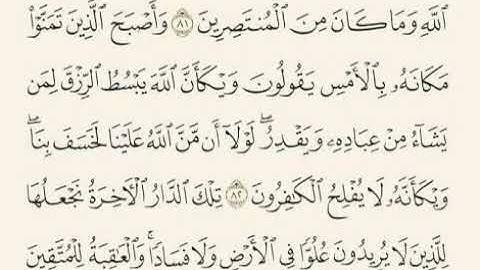 اللَّهِ وَمَا كَانَ مِنَ الْمُنتَصِرِينَ ٨١ وَأَصْبَحَ الَّذِينَ تَمَنَّوْا
مَكَانَهُۥ بِالْأَمْسِ يَقُولُونَ وَيْكَأَنَّ اللَّهَ يَبْسُطُ الرِّزْقَ لِمَن
يَشَآءُ مِنْ عِبَادِهِۦ وَيَقْدِرُ ۖ لَوْلَآ أَن مَّنَّ اللَّهُ عَلَيْنَا لَخَسَفَ بِنَا ۖ
وَيْكَأَنَّهُۥ لَا يُفْلِحُ الْكَٰفِرُونَ ٨٢ تِلْكَ الدَّارُ الْأَخِرَةُ نَجْعَلُهَا
لِلَّذِينَ لَا يُرِيدُونَ عُلُوًّا فِي الْأَرْضِ وَلَا فَسَادًا ۚ وَالْعَٰقِبَةُ لِلْمُتَّقِينَ